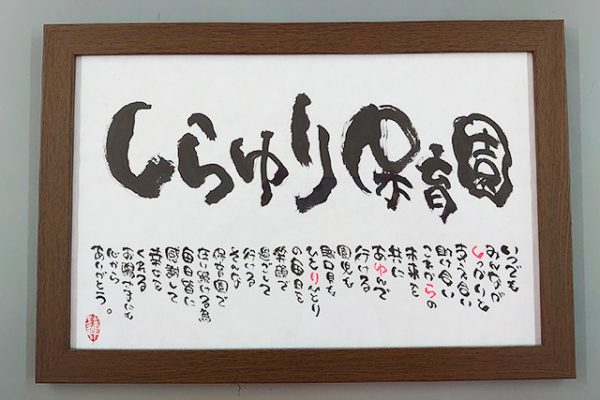 しらゆり保育園
いつでも
みんなが
しっかりと
ささえ合い
助け合い
これからの
未来を
共に
あゆんで
行ける
園児も
職員も
ひとりひとり
の毎日を
笑顔で
過ごして
行ける
そんな
保育園で
在り続ける為
毎日皆に
感謝して
くれる
心から
ありがとう。